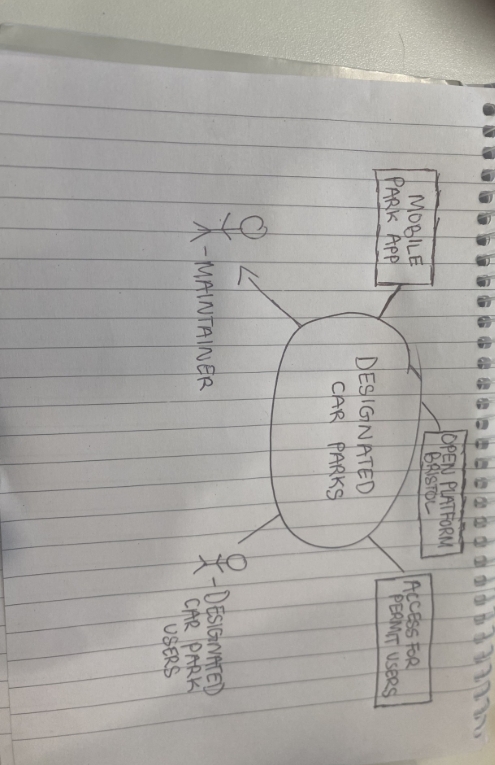 MOBILE
PARK APP
OPEN PLATFORM
BRISTOL
ACCESS FOR
PERMIT USERS
DESIGNATED
CAR PARKS
- MAINTAINER
- DESIGNATED
CAR PARK
USERS